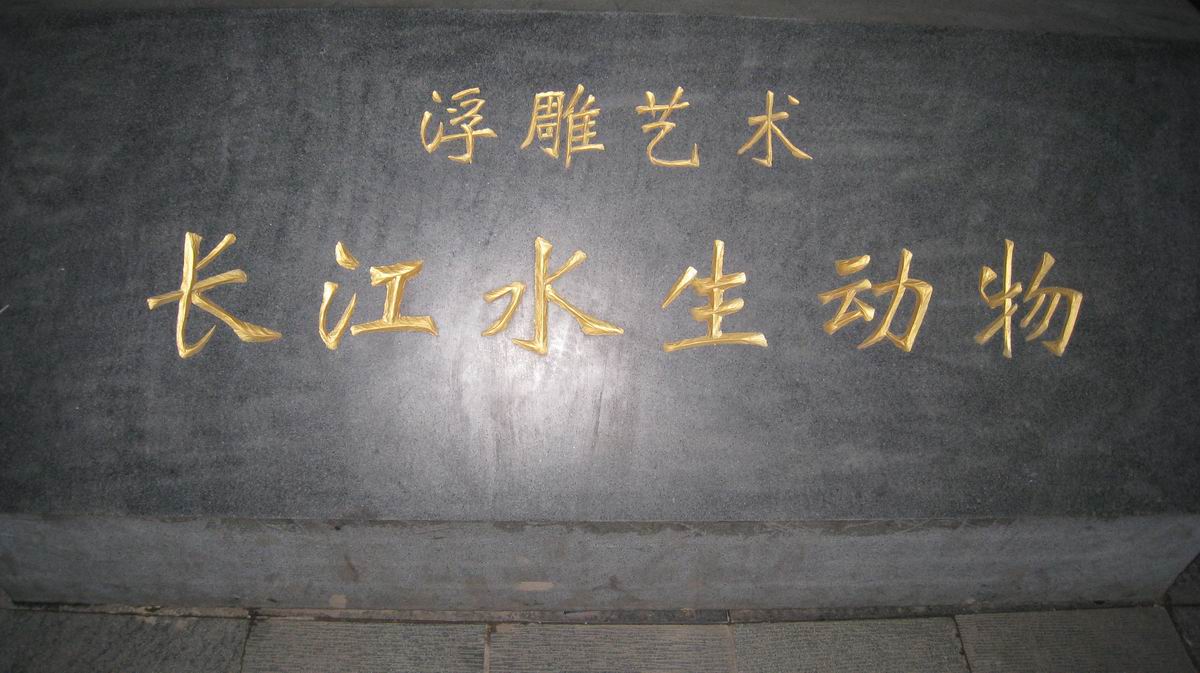 浮雕艺术
长江水生动物